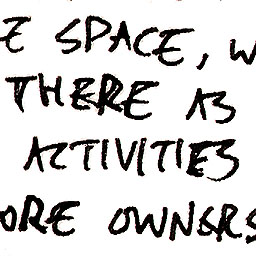 E SPACE, W
THERE AS
ACTIVITIES
ORE OWNERS